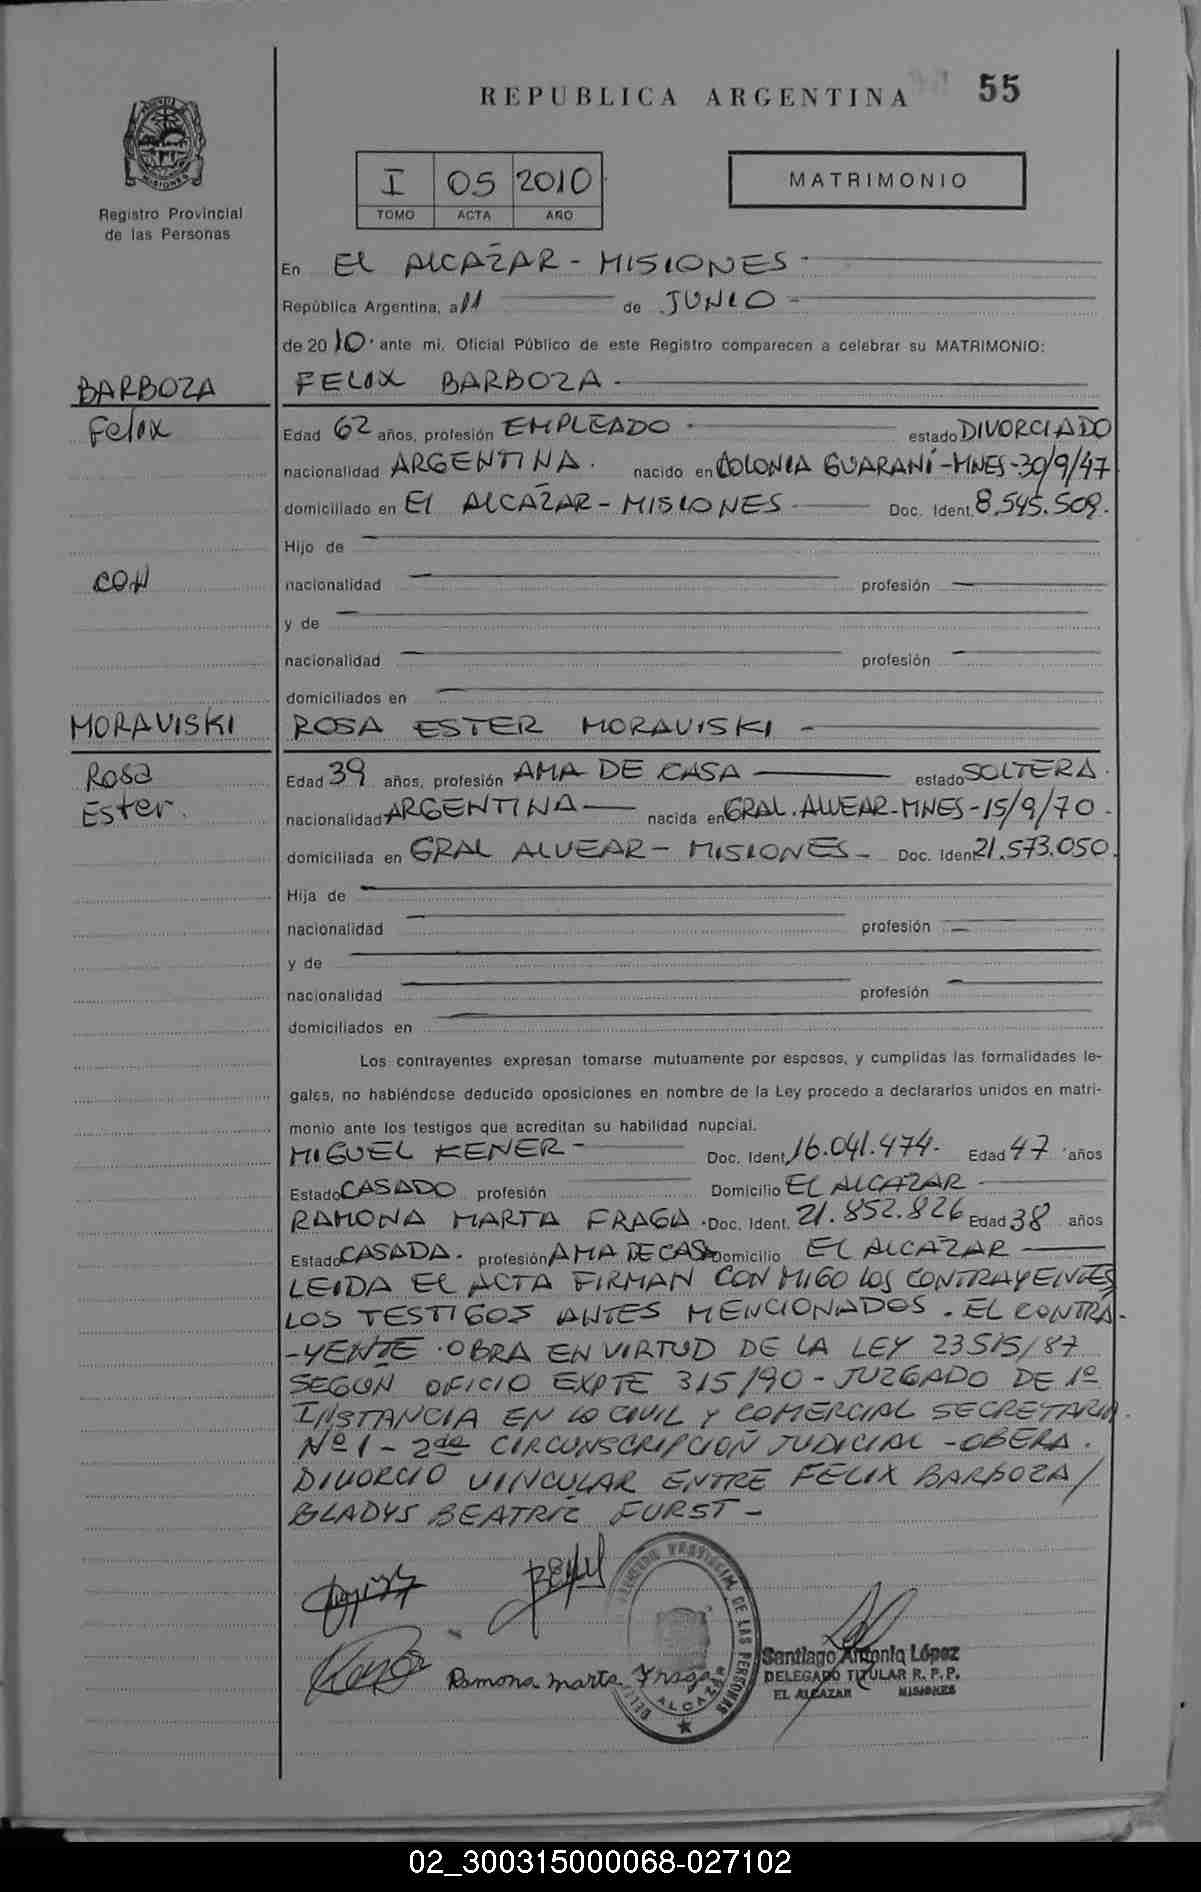 REPUBLICA ARGENTINA 55
MISIONES
Registro Provincial
de las Personas
I 05 2010
TOMO ACTA AÑO
MATRIMONIO
En EL ALCAZAR - MISIONES
República Argentina, a 11 de JUNIO
de 2010 ante mi, Oficial Público de este Registro comparecen a celebrar su MATRIMONIO:
BARBOZA
Felix
CON
MORAVISKI
Rosa
Ester.
FELIX BARBOZA
Edad 62 años, profesión EMPLEADO estado DIVORCIADO
nacionalidad ARGENTINA. nacido en COLONIA GUARANÍ-MNES-30/9/47
domiciliado en El ALCAZAR - MISIONES Doc. Ident. 8.545.509.
Hijo de
nacionalidad profesión
y de
nacionalidad profesión
domiciliados en
ROSA ESTER MORAVISKI
Edad 39 años, profesión AMA DE CASA estado SOLTERA.
nacionalidad ARGENTINA nacida en GRAL. ALVEAR-MNES-15/9/70.
domiciliada en GRAL ALVEAR - MISIONES Doc. Ident 21.573.050.
Hija de
nacionalidad profesión
y de
nacionalidad profesión
domiciliados en
Los contrayentes expresan tomarse mutuamente por esposos, y cumplidas las formalidades le-
gales, no habiéndose deducido oposiciones en nombre de la Ley procedo a declararlos unidos en matri-
monio ante los testigos que acreditan su habilidad nupcial.
MIGUEL KENER - Doc. Ident. 16.041.474. Edad 47 años
Estado CASADO profesión Domicilio EL ALCAZAR
RAMONA MARTA FRAGA Doc. Ident. 21.852.826 Edad 38 años
Estado CASADA. profesión AMA DE CASA Domicilio EL ALCAZAR
LEIDA EL ACTA FIRMAN CONMIGO LOS CONTRAYENTES
LOS TESTIGOS ANTES MENCIONADOS. EL CONTRA-
-YENTE OBRA EN VIRTUD DE LA LEY 23515/87
SEGÚN OFICIO EXPTE 315/90 - JUZGADO DE 1º
INSTANCIA EN LO CIVIL Y COMERCIAL SECRETARIA
Nº 1 - 2da CIRCUNSCRIPCION JUDICIAL - OBERA.
DIVORCIO VINCULAR ENTRE FELIX BARBOZA/
GLADYS BEATRIZ FURST -
Ramona Marta Fraga
PROVINCIAL DE LAS PERSONAS
ALCAZAR
Santiago Antonio López
DELEGADO TITULAR R. P. P.
EL ALCAZAR MISIONES
02_300315000068-027102